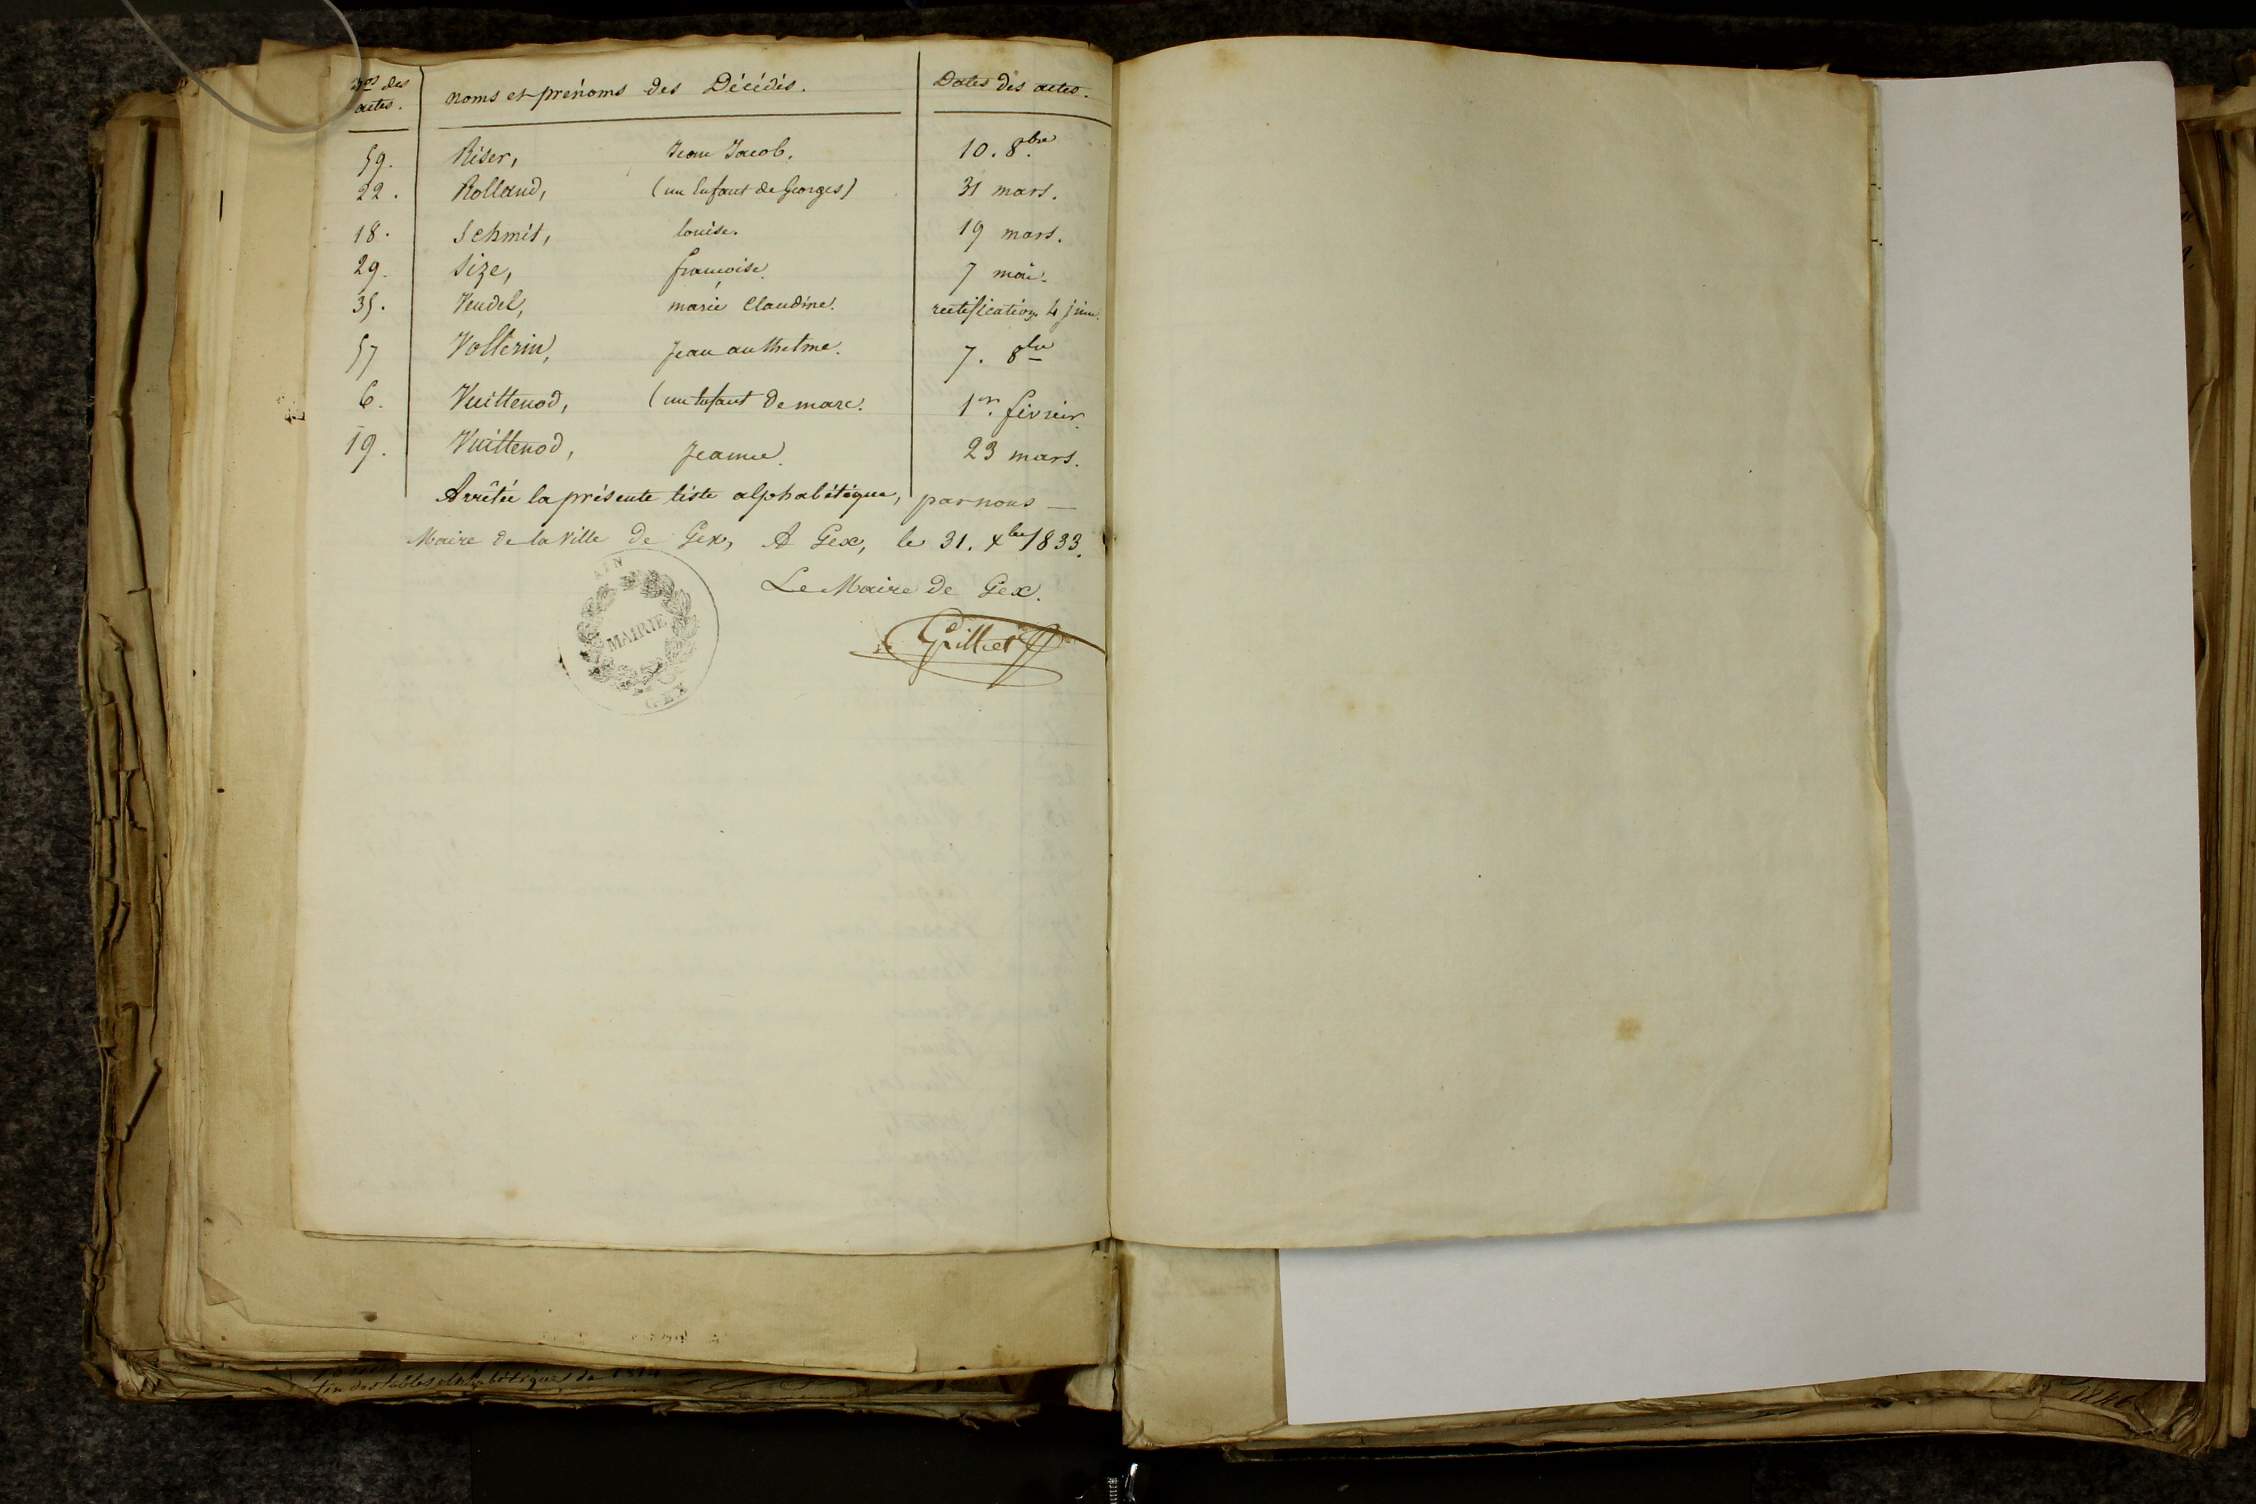 Nos des actes. noms et prénoms des Décédés. Dates des actes.
59. Riser, Jean Jacob. 10. 8bre
22. Rolland, (un Enfant de Georges) 31 mars.
18. Schmit, louise. 19 mars.
29. Size, françoise. 7 mai.
35. Veudel, marie Claudine. rectification 4 juin.
57 Vollerin, Jean anthelme. 7. 8bre
6. Vuittenod, (un Enfant de marc. 1er. février.
19. Vuittenod, Jeanne. 23 mars.
Arrêtée la présente liste alphabétique, par nous
Maire de la Ville de Gex, A Gex, le 31. xbre 1833.
Le Maire de Gex.
Grilliet
AIN
MAIRIE
GEX
fin des tables alphabétiques de